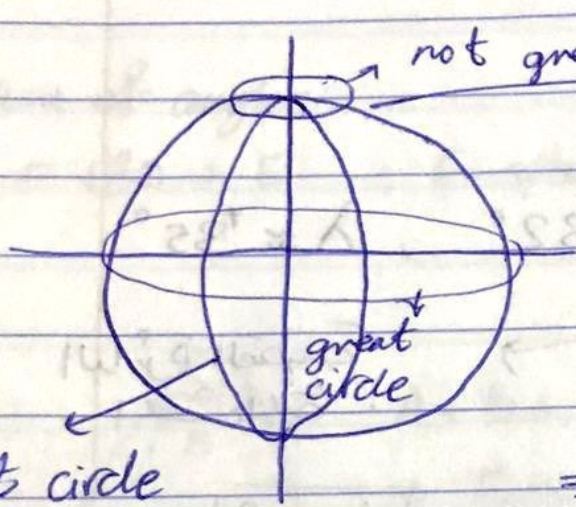 not gre
great
circle
circle
=